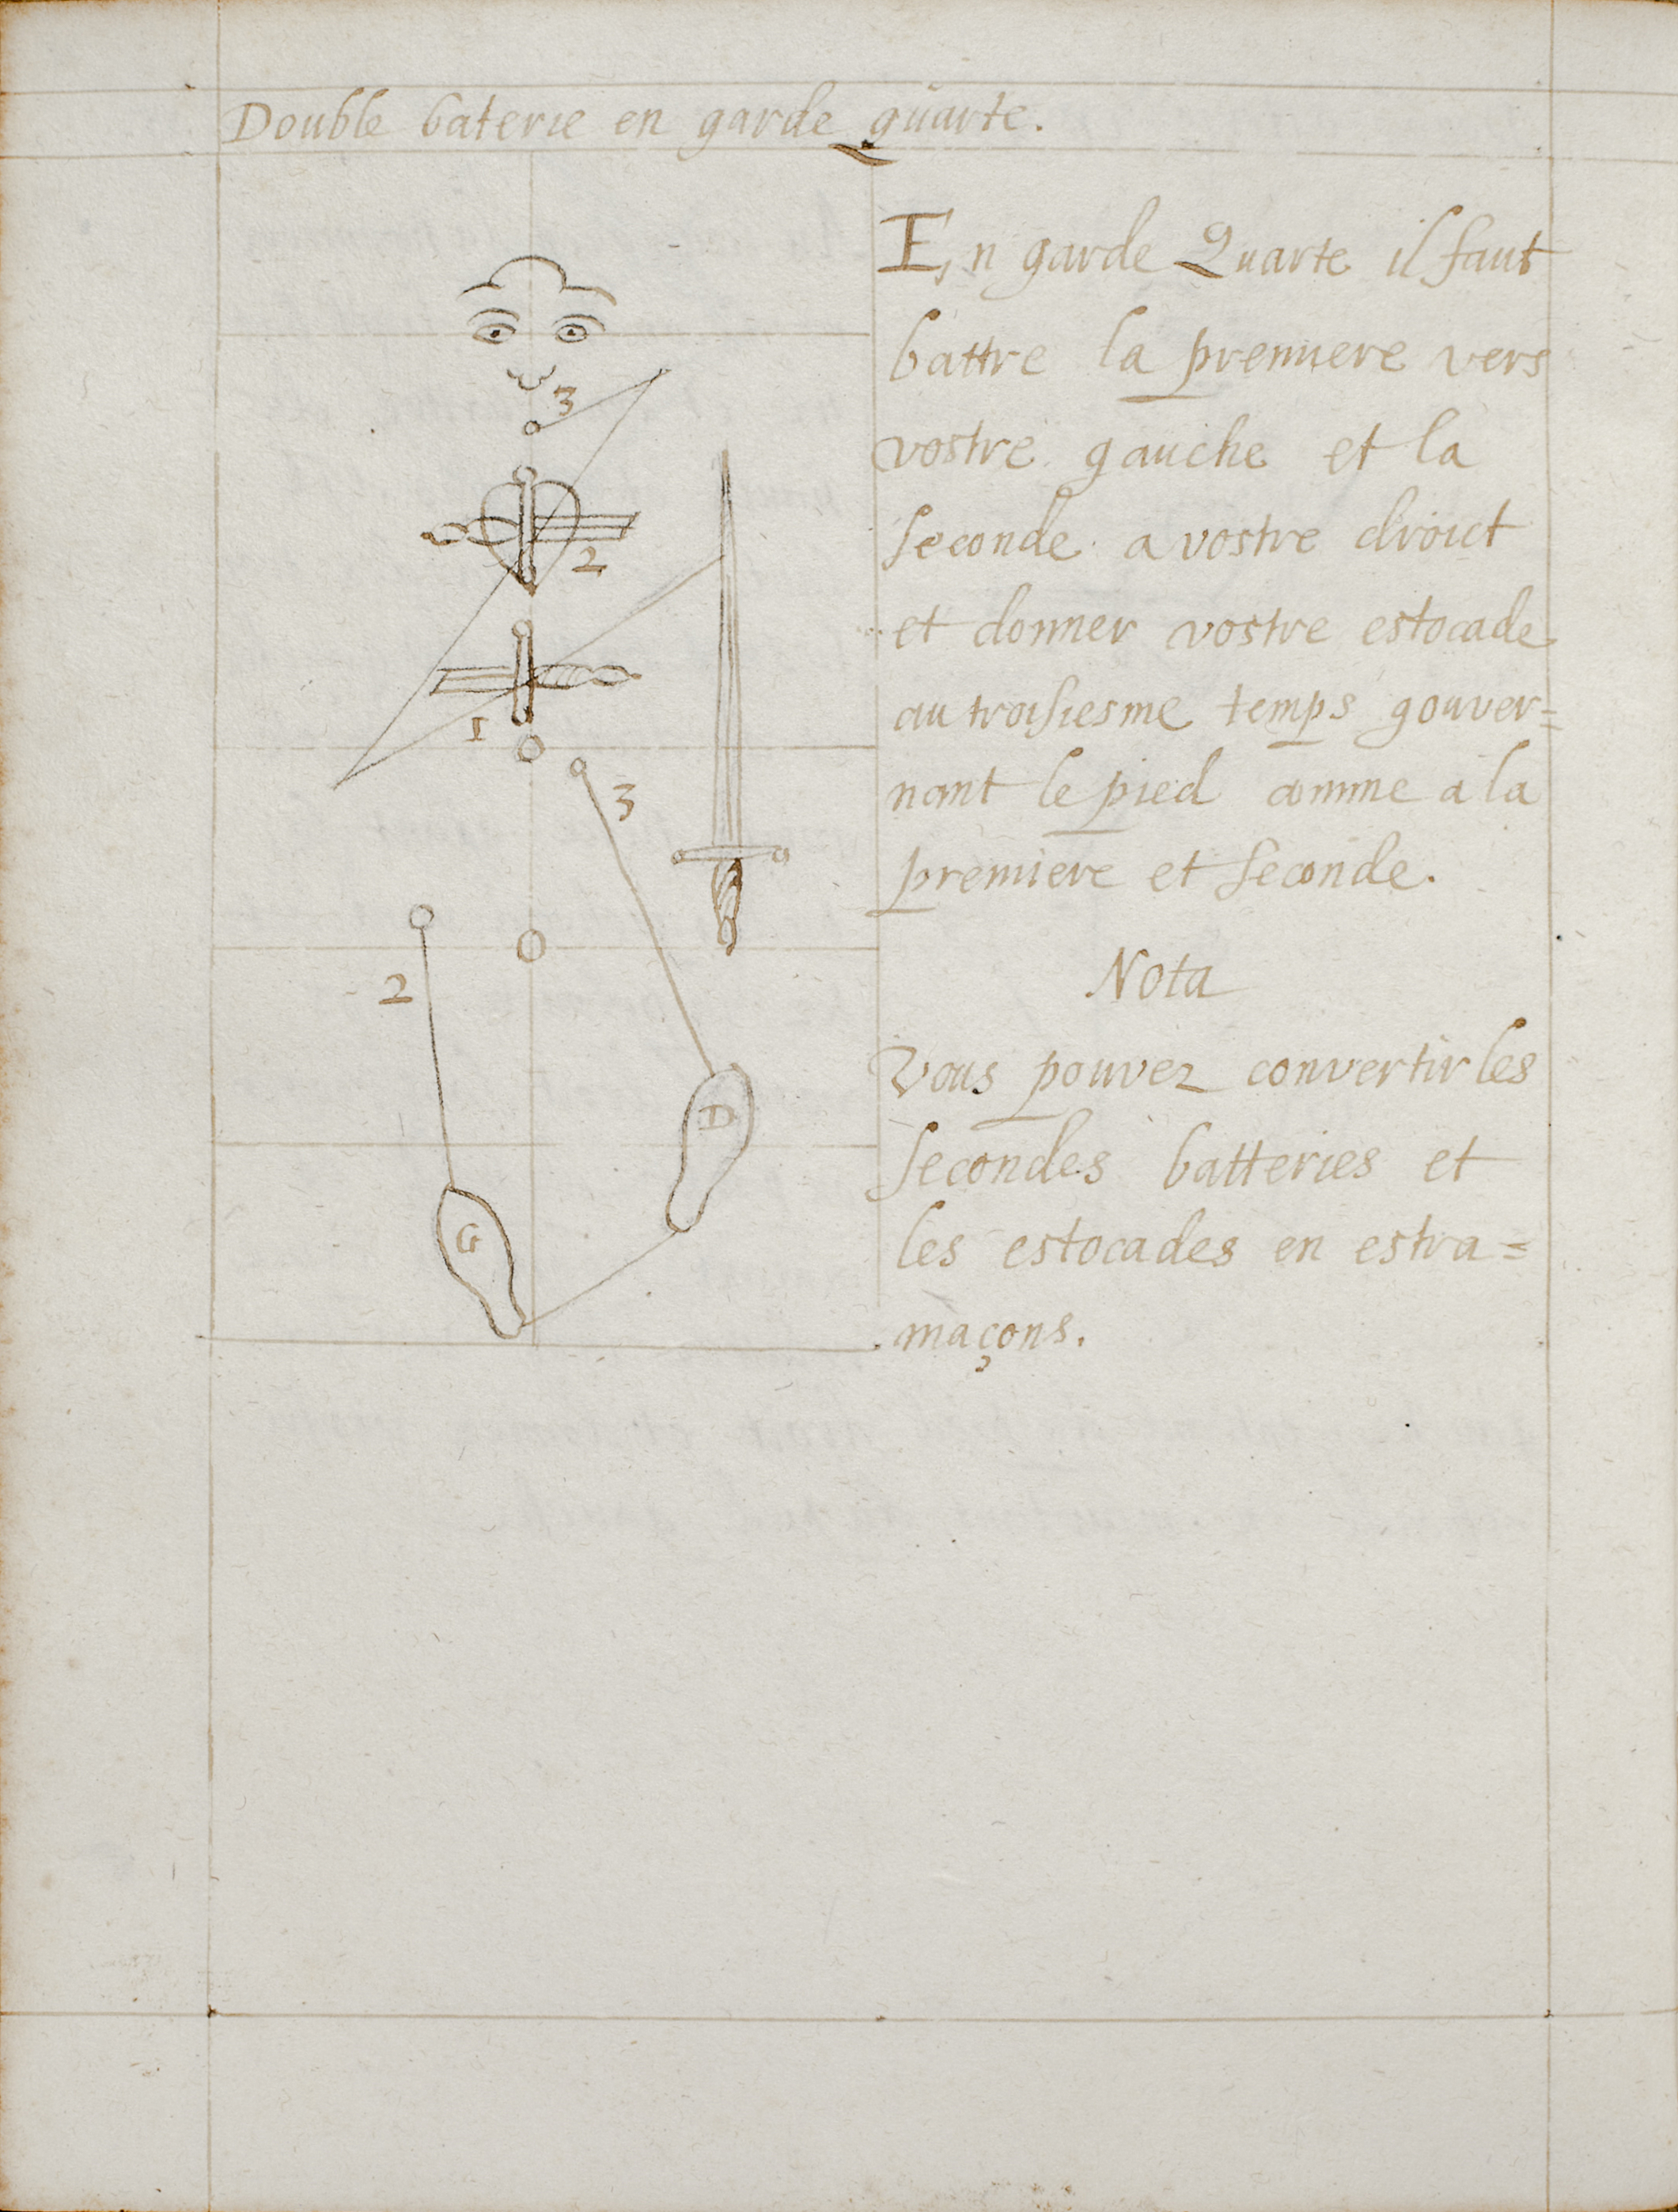 Double baterie en garde quarte.
En garde Quarte il faut
battre la premiere vers
vostre gauche et la
seconde a vostre droict
et donner vostre estocade
au troisiesme temps gouver=
nant le pied comme a la
premiere et seconde.
Nota
Vous pouvez convertir les
secondes batteries et
les estocades en estra=
maçons.
3
2
1
3
2
D
G